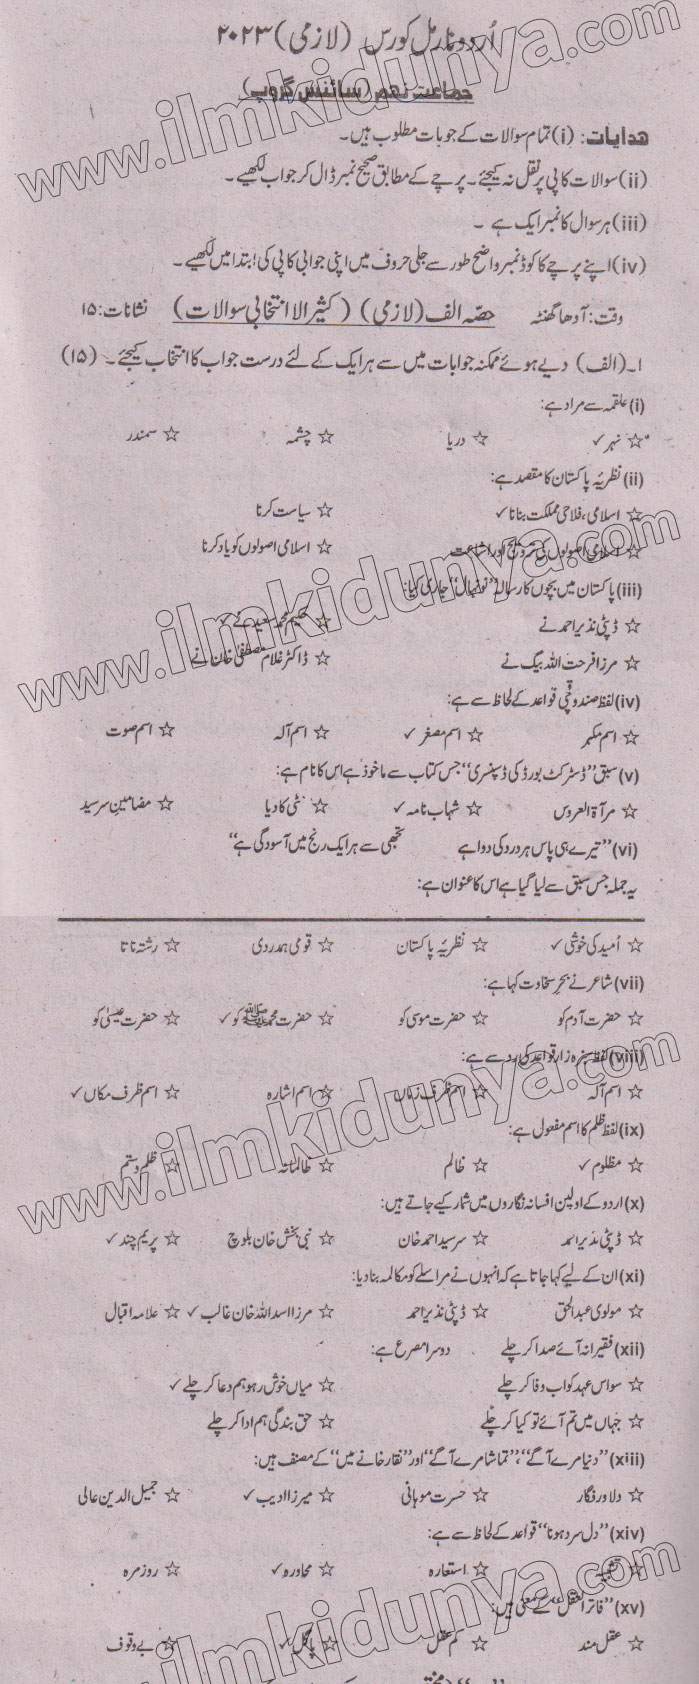 اُردو نارمل کورس (لازمی) ۲۰۲۳
جماعت نہم (سائنس گروپ)
ہدایات: (i) تمام سوالات کے جوبات مطلوب ہیں۔
(ii) سوالات کاپی پر نقل نہ کیجئے۔ پرچے کے مطابق صحیح نمبر ڈال کر جواب لکھیے۔
(iii) ہر سوال کا نمبر ایک ہے ۔
(iv) اپنے پرچے کا کوڈ نمبر واضح طور سے جلی حروف میں اپنی جوابی کاپی کی اِبتدا میں لکھیے۔
وقت: آدھا گھنٹہ حصّہ الف (لازمی) (کثیر الا انتخابی سوالات) نشانات: ۱۵
۱۔ (الف) دیے ہوئے ممکنہ جوابات میں سے ہر ایک کے لئے درست جواب کا انتخاب کیجئے۔ (۱۵)
(i) علقمہ سے مراد ہے:
☆ نہر ✓ ☆ دریا ☆ چشمہ ☆ سمندر
(ii) نظریہ پاکستان کا مقصد ہے:
☆ اسلامی، فلاحی مملکت بنانا ✓ ☆ سیاست کرنا
☆ اسلامی اصولوں کی ترویج اور اشاعت ☆ اسلامی اصولوں کو یاد کرنا
(iii) پاکستان میں بچوں کا رسالہ "نونہال" جاری کیا:
☆ ڈپٹی نذیر احمد نے ☆ حکیم محمد سعید نے ✓
☆ مرزا فرحت اللہ بیگ نے ☆ ڈاکٹر غلام مصطفیٰ خان نے
(iv) لفظ صندوقچی قواعد کے لحاظ سے ہے:
☆ اسم مکبر ☆ اسم مصغر ✓ ☆ اسم آلہ ☆ اسم صوت
(v) سبق "ڈسٹرکٹ بورڈ کی ڈسپنسری" جس کتاب سے ماخوذ ہے اس کا نام ہے:
☆ مرآۃ العروس ☆ شہاب نامہ ✓ ☆ مٹی کا دیا ☆ مضامینِ سرسید
(vi) "تیرے ہی پاس ہر درد کی دوا ہے تجھی سے ہر ایک رنج میں آسودگی ہے"
یہ جملہ جس سبق سے لیا گیا ہے اس کا عنوان ہے:
☆ اُمید کی خوشی ✓ ☆ نظریہ پاکستان ☆ قومی ہمدردی ☆ رشتہ ناتا
(vii) شاعر نے بحرِ سخاوت کہا ہے:
☆ حضرت آدم کو ☆ حضرت موسیٰ کو ☆ حضرت محمد ﷺ کو ✓ ☆ حضرت عیسیٰ کو
(viii) لفظ سبزہ زار قواعد کی رو سے ہے:
☆ اسم آلہ ☆ اسم ظرف زماں ☆ اسم اشارہ ☆ اسم ظرف مکاں ✓
(ix) لفظ ظلم کا اسم مفعول ہے:
☆ مظلوم ✓ ☆ ظالم ☆ ظالمانہ ☆ ظلم و ستم
(x) اردو کے اولین افسانہ نگاروں میں شمار کیے جاتے ہیں:
☆ ڈپٹی نذیر احمد ☆ سر سید احمد خان ☆ نبی بخش خان بلوچ ☆ پریم چند ✓
(xi) ان کے لیے کہا جاتا ہے کہ انہوں نے مراسلے کو مکالمہ بنا دیا:
☆ مولوی عبدالحق ☆ ڈپٹی نذیر احمد ☆ مرزا اسد اللہ خان غالب ✓ ☆ علامہ اقبال
(xii) فقیرانہ آئے صدا کر چلے دوسرا مصرع ہے:
☆ سو اس عہد کو اب وفا کر چلے ☆ میاں خوش رہو ہم دعا کر چلے ✓
☆ جہاں میں تم آئے تو کیا کر چلے ☆ حق بندگی ہم ادا کر چلے
(xiii) "دنیا مرے آگے"، "تماشا مرے آگے" اور "نقار خانے میں" کے مصنف ہیں:
☆ دلاور فگار ☆ حسرت موہانی ☆ میرزا ادیب ✓ ☆ جمیل الدین عالی
(xiv) "دل سرد ہونا" قواعد کے لحاظ سے ہے:
☆ تشبیہ ☆ استعارہ ☆ محاورہ ✓ ☆ روزمرہ
(xv) "فاتر العقل" کے معنی ہیں:
☆ عقل مند ☆ کم عقل ☆ پاگل ✓ ☆ بے وقوف
www.ilmkidunya.com
www.ilmkidunya.com
www.ilmkidunya.com
www.ilmkidunya.com